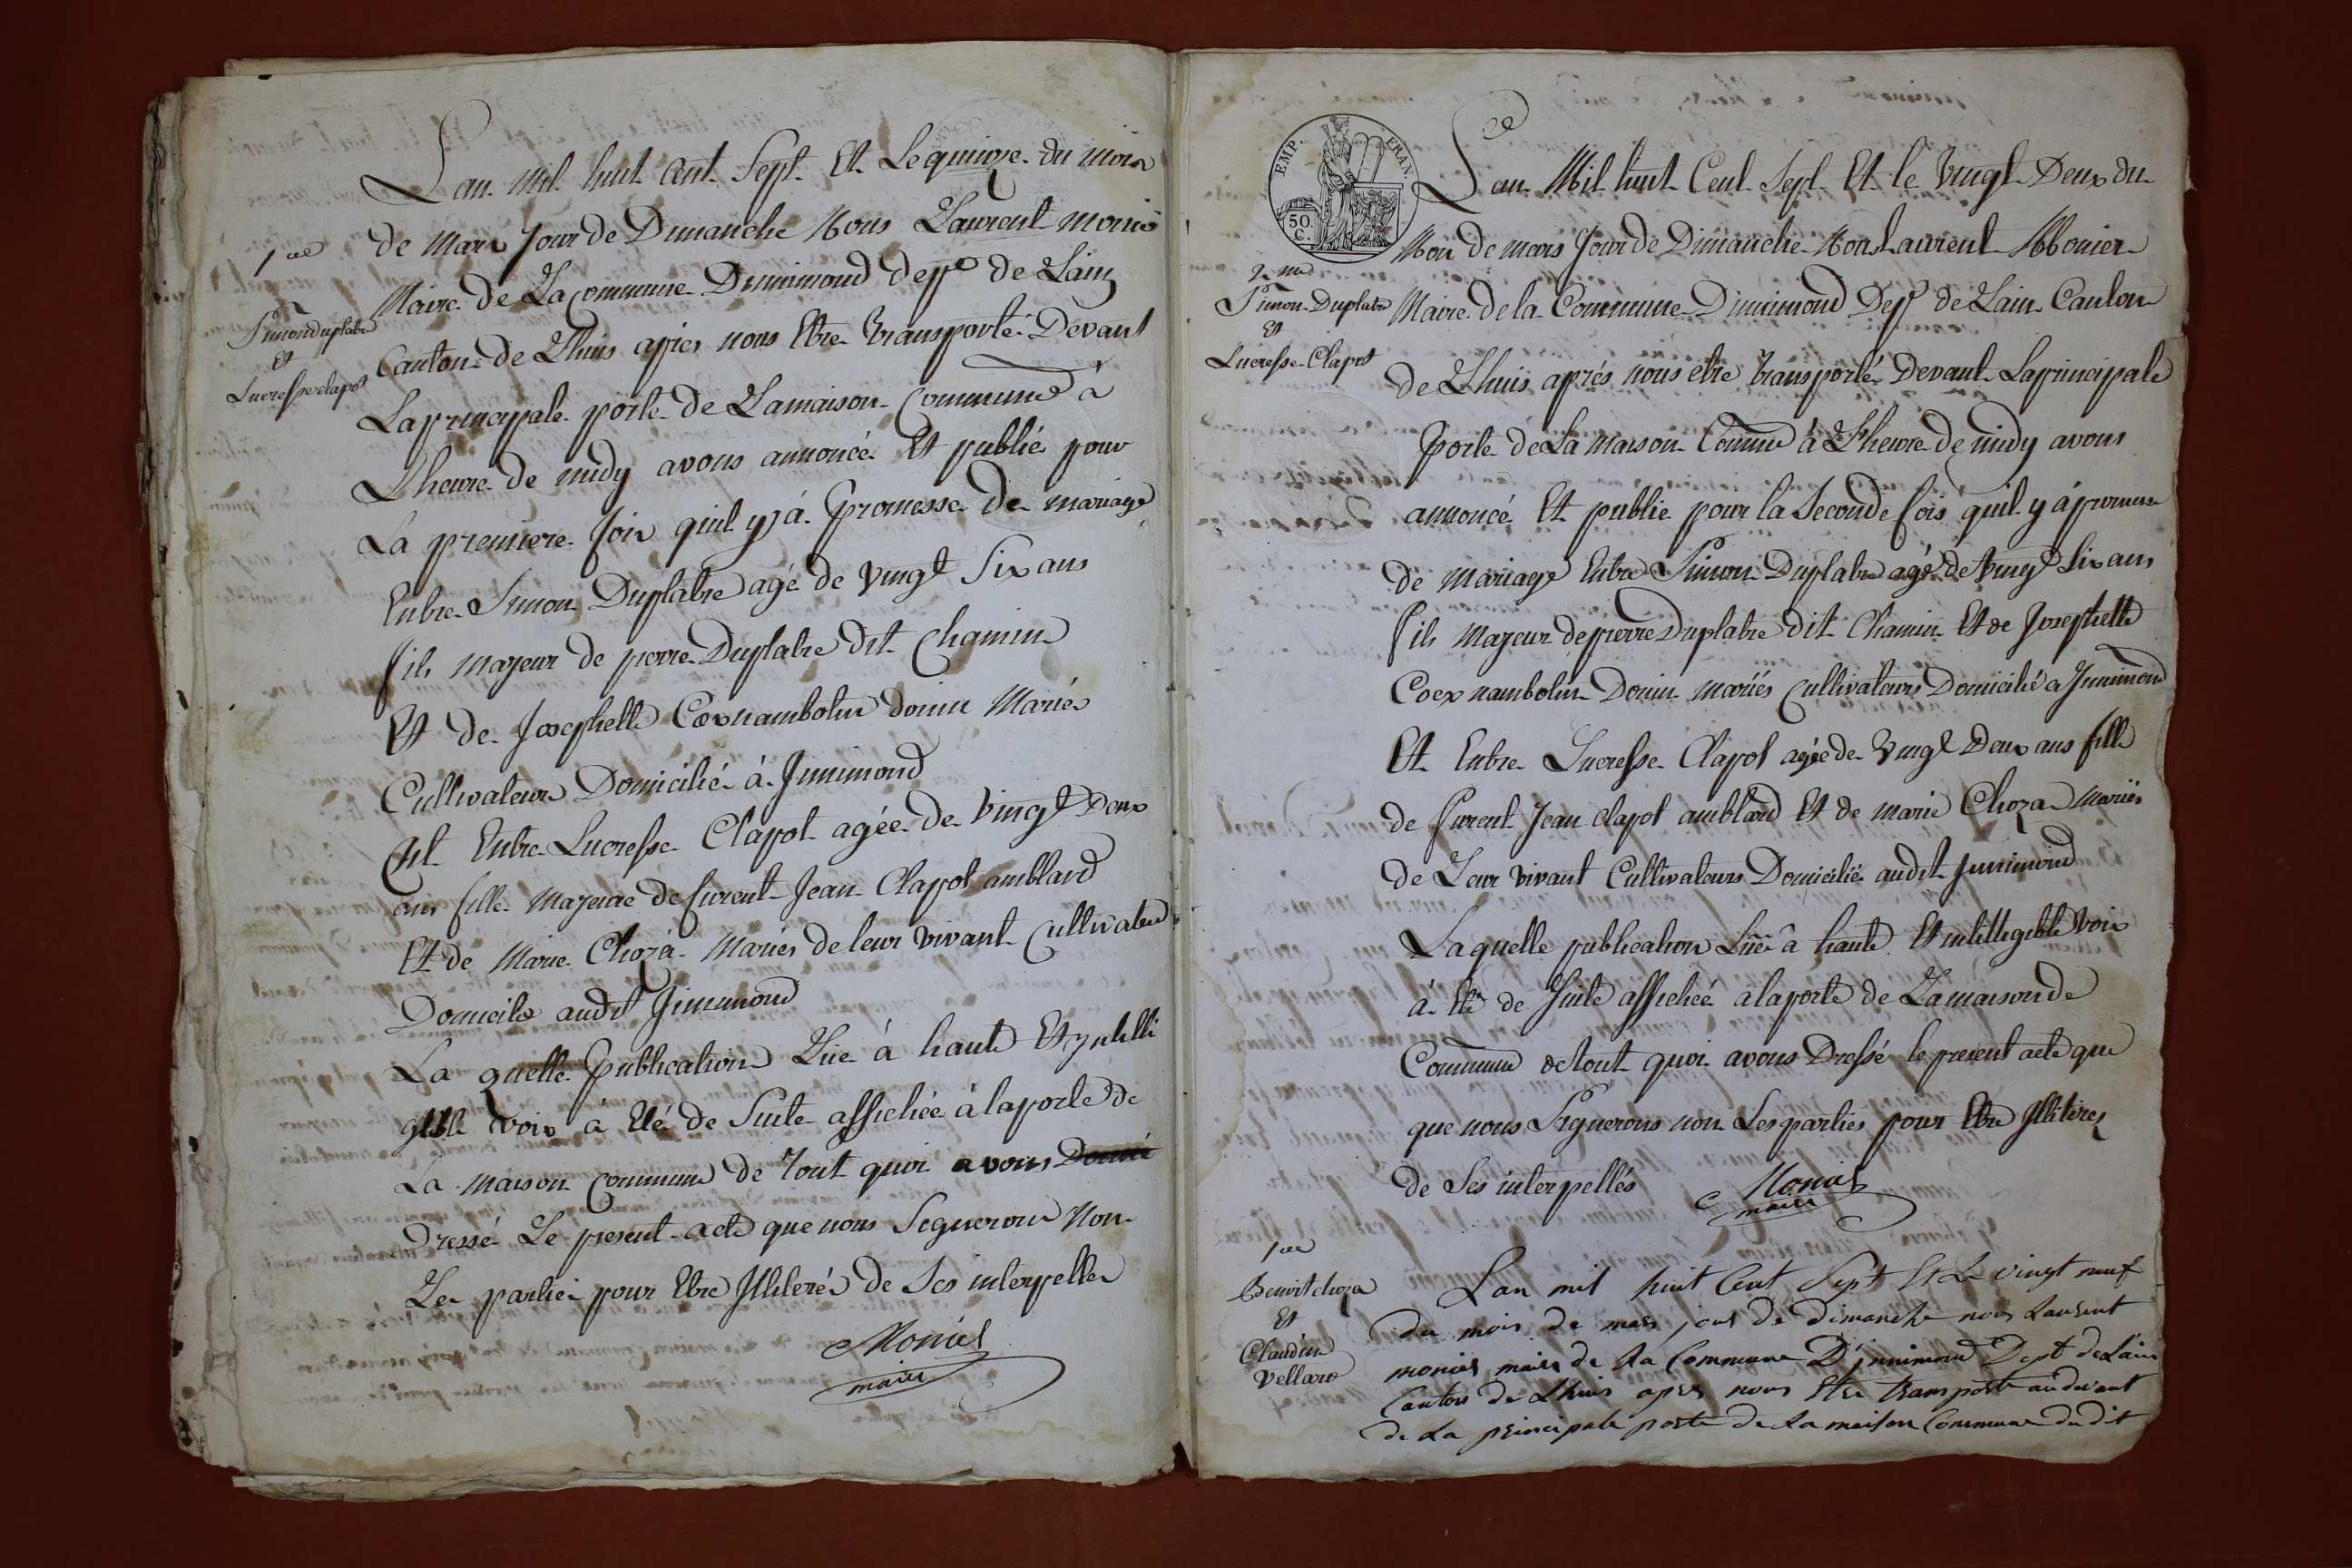 Lan mil huit cent Sept Et Le quinze du mois
1re
de mars Jour de Dimanche Nous Laurent monier
Maire de La commune Dinnimond depp de Lain
Simon duplatre
Et
Lucresse clapot
Canton de Lhuis apres nous Etre transporté Devant
La principale porte de La maison Commune à
L'heure de midy avons annoncé Et publié pour
La premiere fois quil y à promesse de mariage
Entre Simon Duplatre agé de vingt Six ans
fils majeur de pierre Duplatre dit Chamin
Et de Josephette Coex nambotin donin Mariés
Cultivateurs Domicilié à Jnnimond
Et Entre Lucresse Clapot agée de vingt Deux
ans fille Majeure de furent Jean Clapot amblard
Et de Marie Choza Mariés de leur vivant Cultivateurs
Domicile audit Jnnimond
La quelle Publication Lüe à haute Et yntelli
gible voix à Eté de Suite affichée à la porte de
La maison commune de Tout quoi avons Donné
Dressé Le present acte que nous Signerons Non
Les parties pour Etre Jlliterés de Ses interpellés
Monier
maire
EMP. FRAN.
50 C.
Lan Mil huit Cent Sept Et le vingt Deux du
Mois de mars Jour de Dimanche Nous Laurent Monier
2me
Simon Duplatre
Et
Lucresse Clapot
Maire de la Commune Dinnimond Depp de Lain Canton
de Lhuis aprés nous etre transporté Devant La principale
porte de La maison Comune à L'heure de midy avons
annoncé Et publie pour la Seconde fois quil y à promesse
de mariage Entre Simon Duplatre agé de vingt Six ans
fils Majeur de pierre Duplatre dit Chamin Et de Josephette
Coex nambotin Donin mariés Cultivateurs Domicilié a Jnnimond
Et Entre Lucresse Clapot agée de vingt Deux ans fille
de furent Jean Clapot amblard Et de marie Choza Mariés
de Leur vivant Cultivateurs Domicilié audit Jnnimond
Laquelle publication Lüe à haute Et intelligible voix
à Eté de Suite affichée a la porte de La maison de
Commune de tout quoi avons Dressé le present acte que
que nous Signerons non Les parties pour Etre Jlliterés
de Ses interpellés
Monier
maire
1re
Benoit choza
Et
Claudine
Vellaro
Lan mil huit Cent Sept Et Le vingt neuf
du mois de mars jour de dimanche nous Laurent
monier maire de La Commune D'jnnimond Dept de Lain
Canton de Lhuis apres nous Etre transporté au devant
de La principale porte de La maison Commune du dit